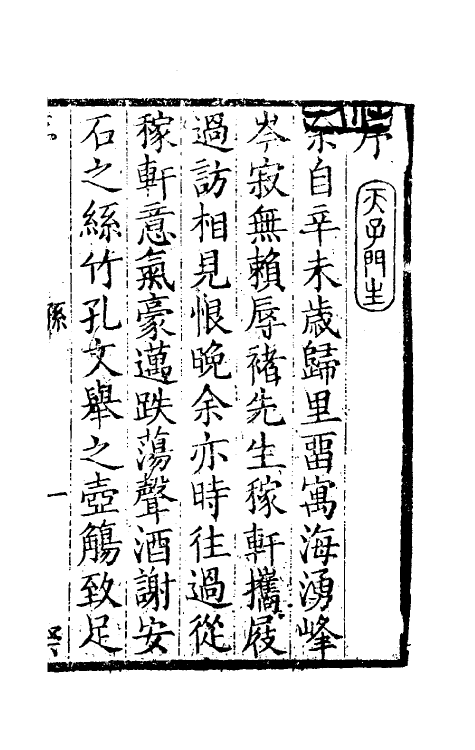 序
天子門生
余自辛未歲歸里畱寓海湧峰
岑寂無賴辱褚先生稼軒攜屐
過訪相見恨晚余亦時往過從
稼軒意氣豪邁跌蕩聲酒謝安
石之絲竹孔文舉之壺觴致足
一